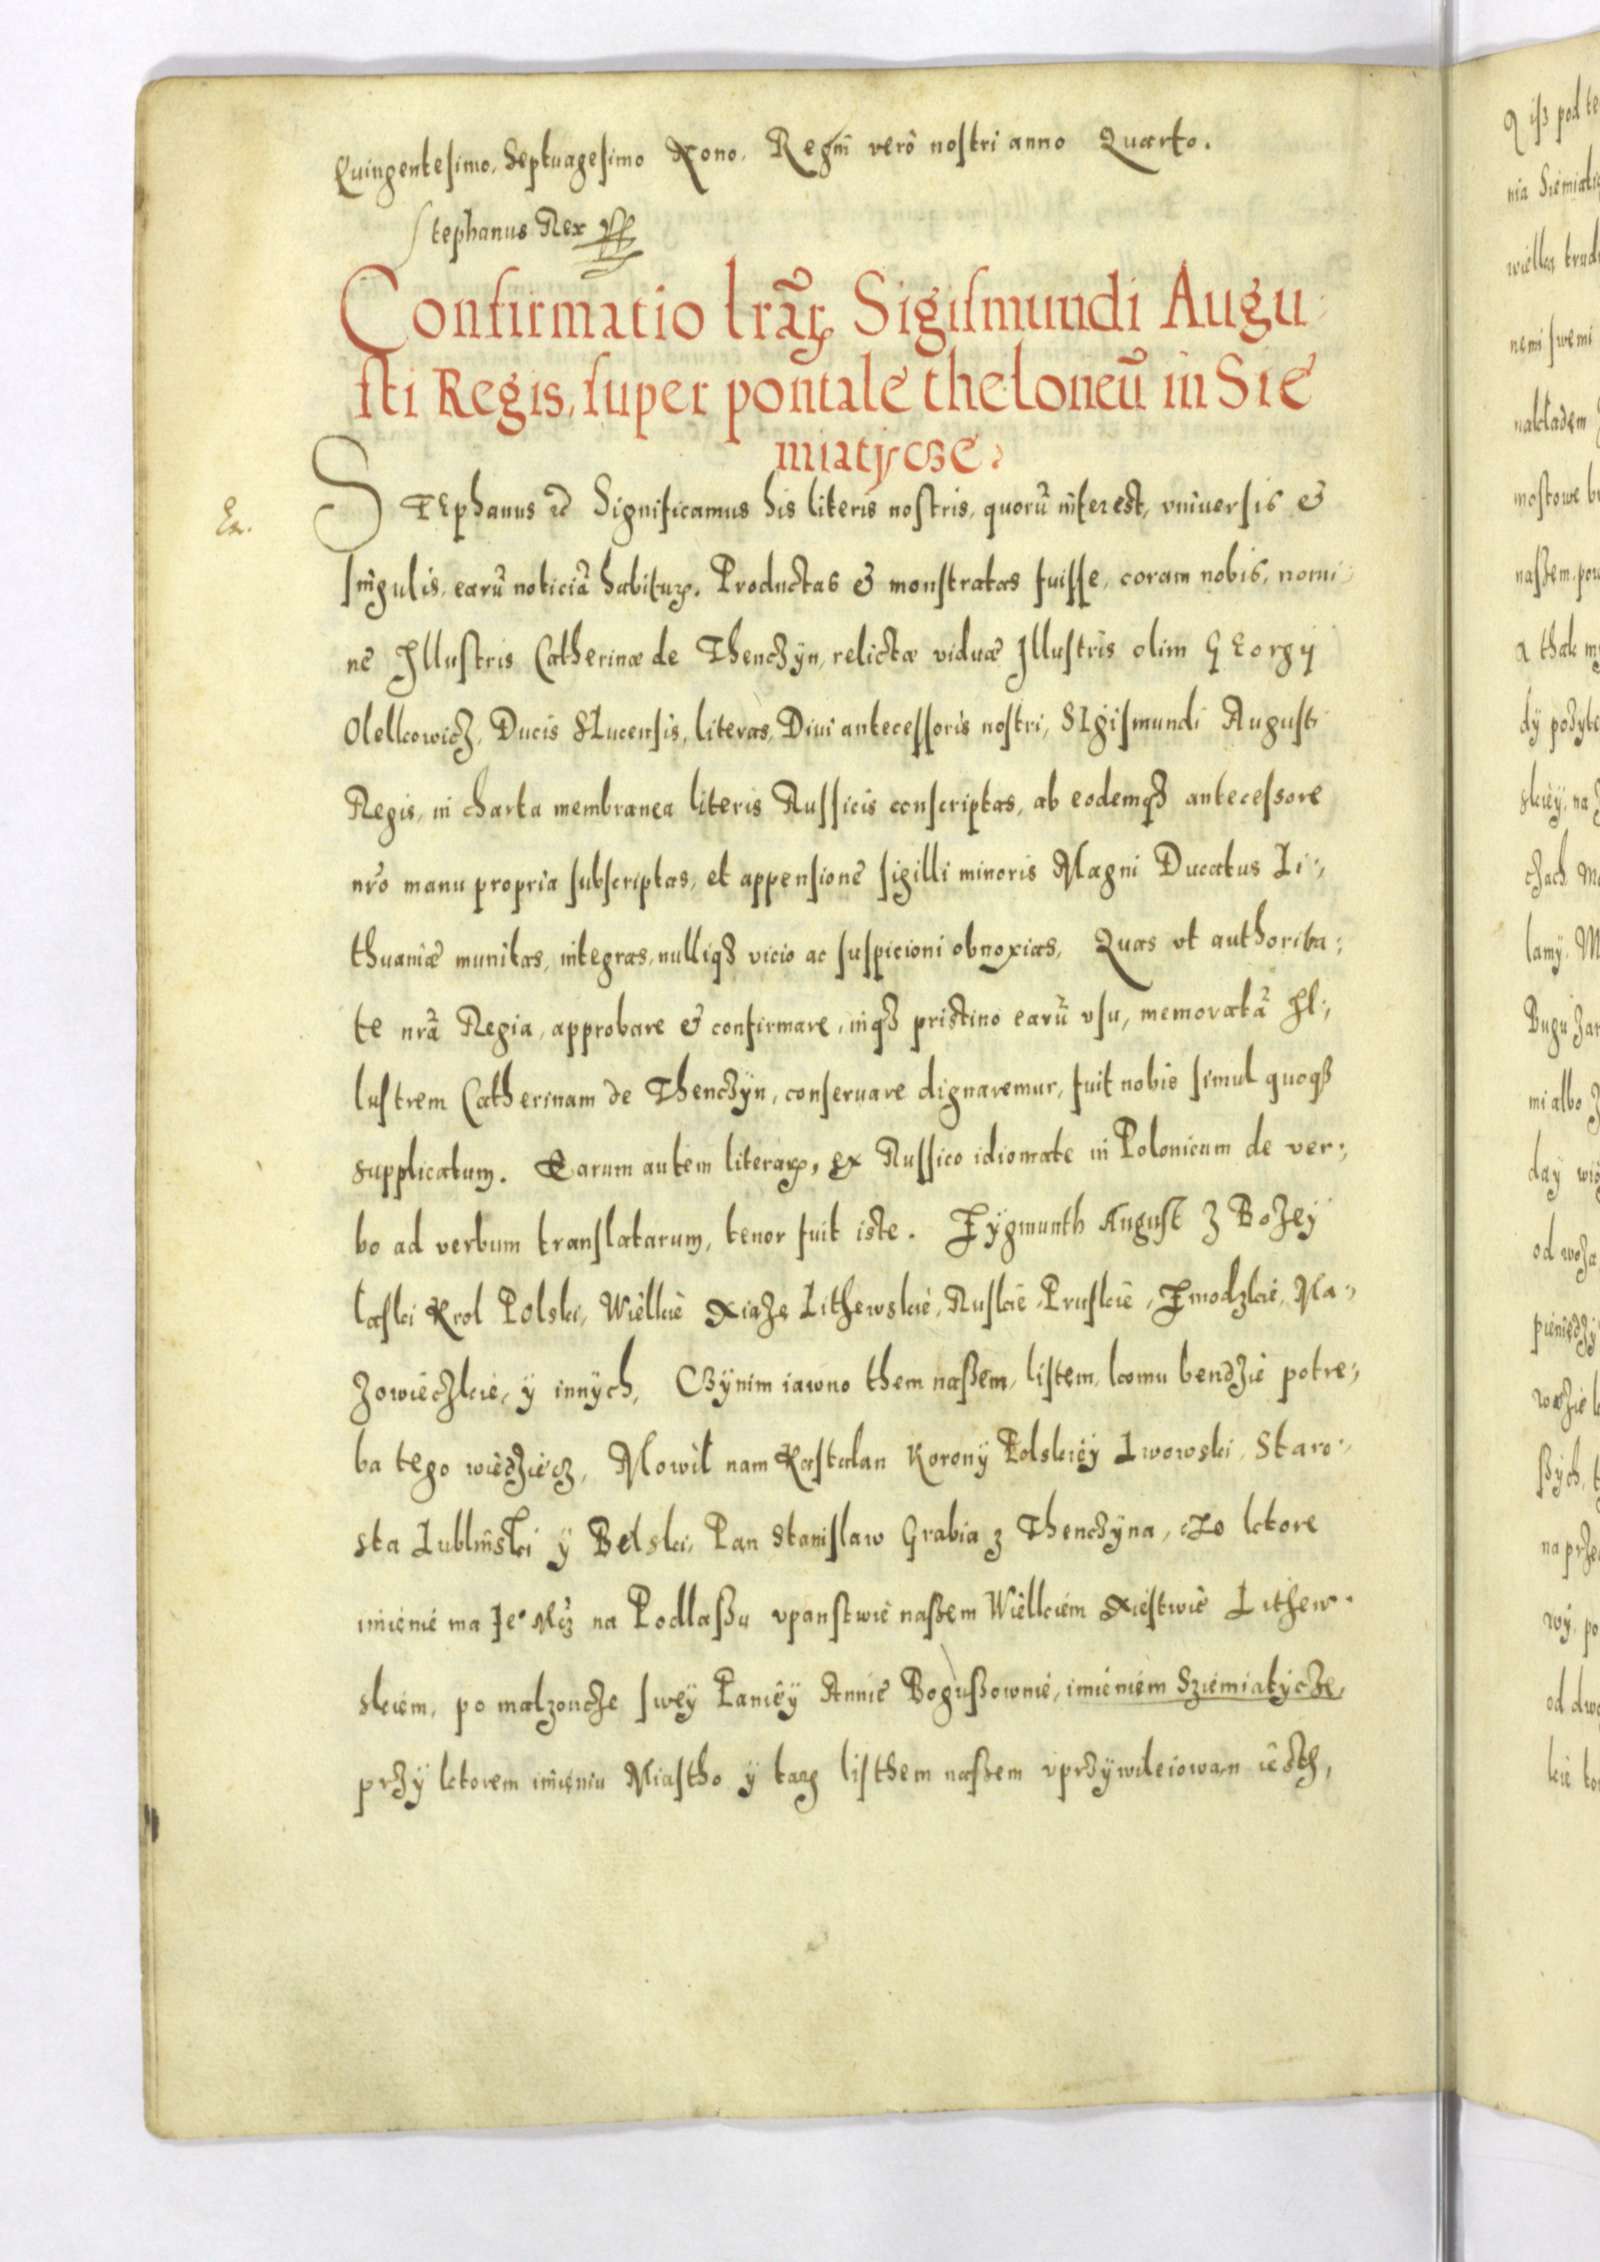 Quingentesimo, Septuagesimo Nono, Regni verò nostri anno Quarto.
Stephanus Rex
Confirmatio lrãrꝝ Sigismundi Augu,
sti Regis, super pontale theloneũ in Sie
miatijcze.
Ex.
STEphanus ꝛc̃ Significamus his literis nostris, quorũ interest, vniuersis &
singulis, earũ noticiã habiturꝝ. Productas & monstratas fuisse, coram nobis, nomi,
ne Illustris Catherinæ de Thenczÿn, relictæ viduæ Illustris olim GEorgij
Olelkowicz, Ducis Slucensis, literas, Diui antecessoris nostri, SIgismundi Augusti
Regis, in charta membranea literis Russicis conscriptas, ab eodemqȝ antecessore
nrõ manu propria subscriptas, et appensione sigilli minoris Magni Ducatus Li,
thuaniæ munitas, integras, nulliqȝ vicio ac suspicioni obnoxias, Quas vt authorita,
te nrã Regia, approbare & confirmare, inqȝ pristino earũ vsu, memoratã Il,
lustrem Catherinam de Thenczÿn, conseruare dignaremur, fuit nobis simul quoqȝ
supplicatum. Earum autem literarꝝ, ex Russico idiomate in Polonicum de ver,
bo ad verbum translatarum, tenor fuit iste. Zygmunth August z Bozey
laski Krol Polski, Wielkie Xiaze Lithewskie, Ruskie, Pruskie, Zmodzkie, Ma,
zowieczkie, ÿ innÿch, Czÿnim iawno them naßem, listem, komu bendzie potre,
ba tego wiedziecz, Mowil nam Kastalan Koronÿ Polskiéÿ Lwowski, Staro,
sta Lublinski ÿ Belski, Pan Stanislaw Grabia z Thenczÿna, czo ktore
imienié ma Je° Mcz na Podlaßu vpanstwie naßem Wielkiem Xiestwie Lithew,
skiem, po malzoncze sweÿ Panieÿ Annie Bogußownie, imieniem Sziemiatÿcze,
przÿ ktorem imieniu Miastho ÿ targ listhem naßem vprzÿwileiowan iesth,